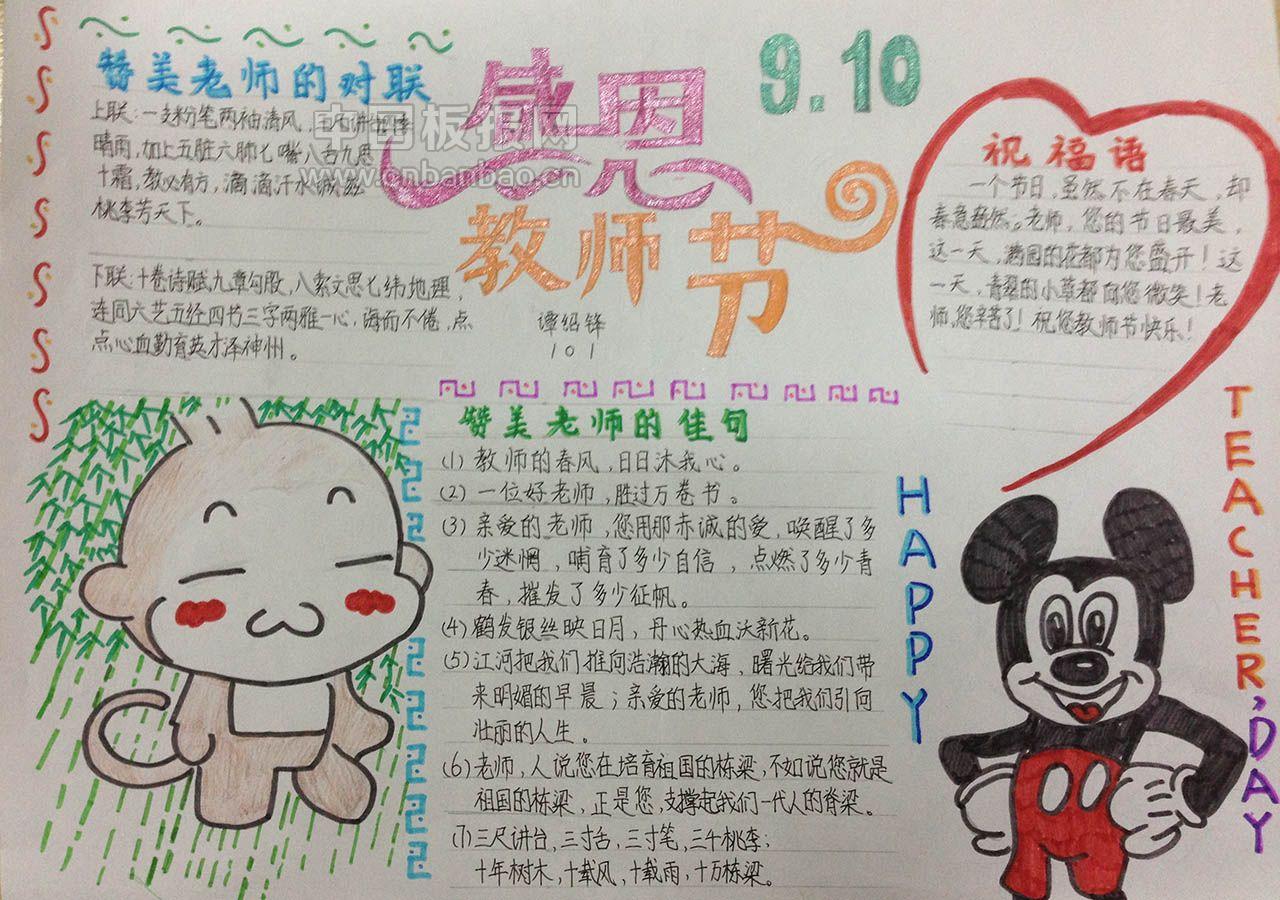 赞美老师的对联
上联:一支粉笔两袖清风,三尺讲台四季
晴雨,加上五脏六肺七嘴八舌九思
十霜,教必有方,滴滴汗水诚滋
桃李芳天下。
下联:十卷诗赋九章勾股,八索文思七纬地理,
连同六艺五经四书三字两雅一心,诲而不倦,点
点心血勤育英才泽神州。
中国板报网
www.cnbanbao.cn
感恩
教师节
9.10
谭绍锋
101
祝福语
一个节日,虽然不在春天,却
春意盎然。老师,您的节日最美,
这一天,满园的花都为您盛开!这
一天,青翠的小草都向您微笑!老
师,您辛苦了!祝您教师节快乐!
赞美老师的佳句
(1)教师的春风,日日沐我心。
(2)一位好老师,胜过万卷书。
(3)亲爱的老师,您用那赤诚的爱,唤醒了多
少迷惘,哺育了多少自信,点燃了多少青
春,摧发了多少征帆。
(4)鹤发银丝映日月,丹心热血沃新花。
(5)江河把我们推向浩瀚的大海,曙光给我们带
来明媚的早晨;亲爱的老师,您把我们引向
壮丽的人生。
(6)老师,人说您在培育祖国的栋梁,不如说您就是
祖国的栋梁,正是您,支撑起我们一代人的脊梁。
(7)三尺讲台,三寸舌,三寸笔,三千桃李;
十年树木,十载风,十载雨,十万栋梁。
HAPPY
TEACHER,DAY